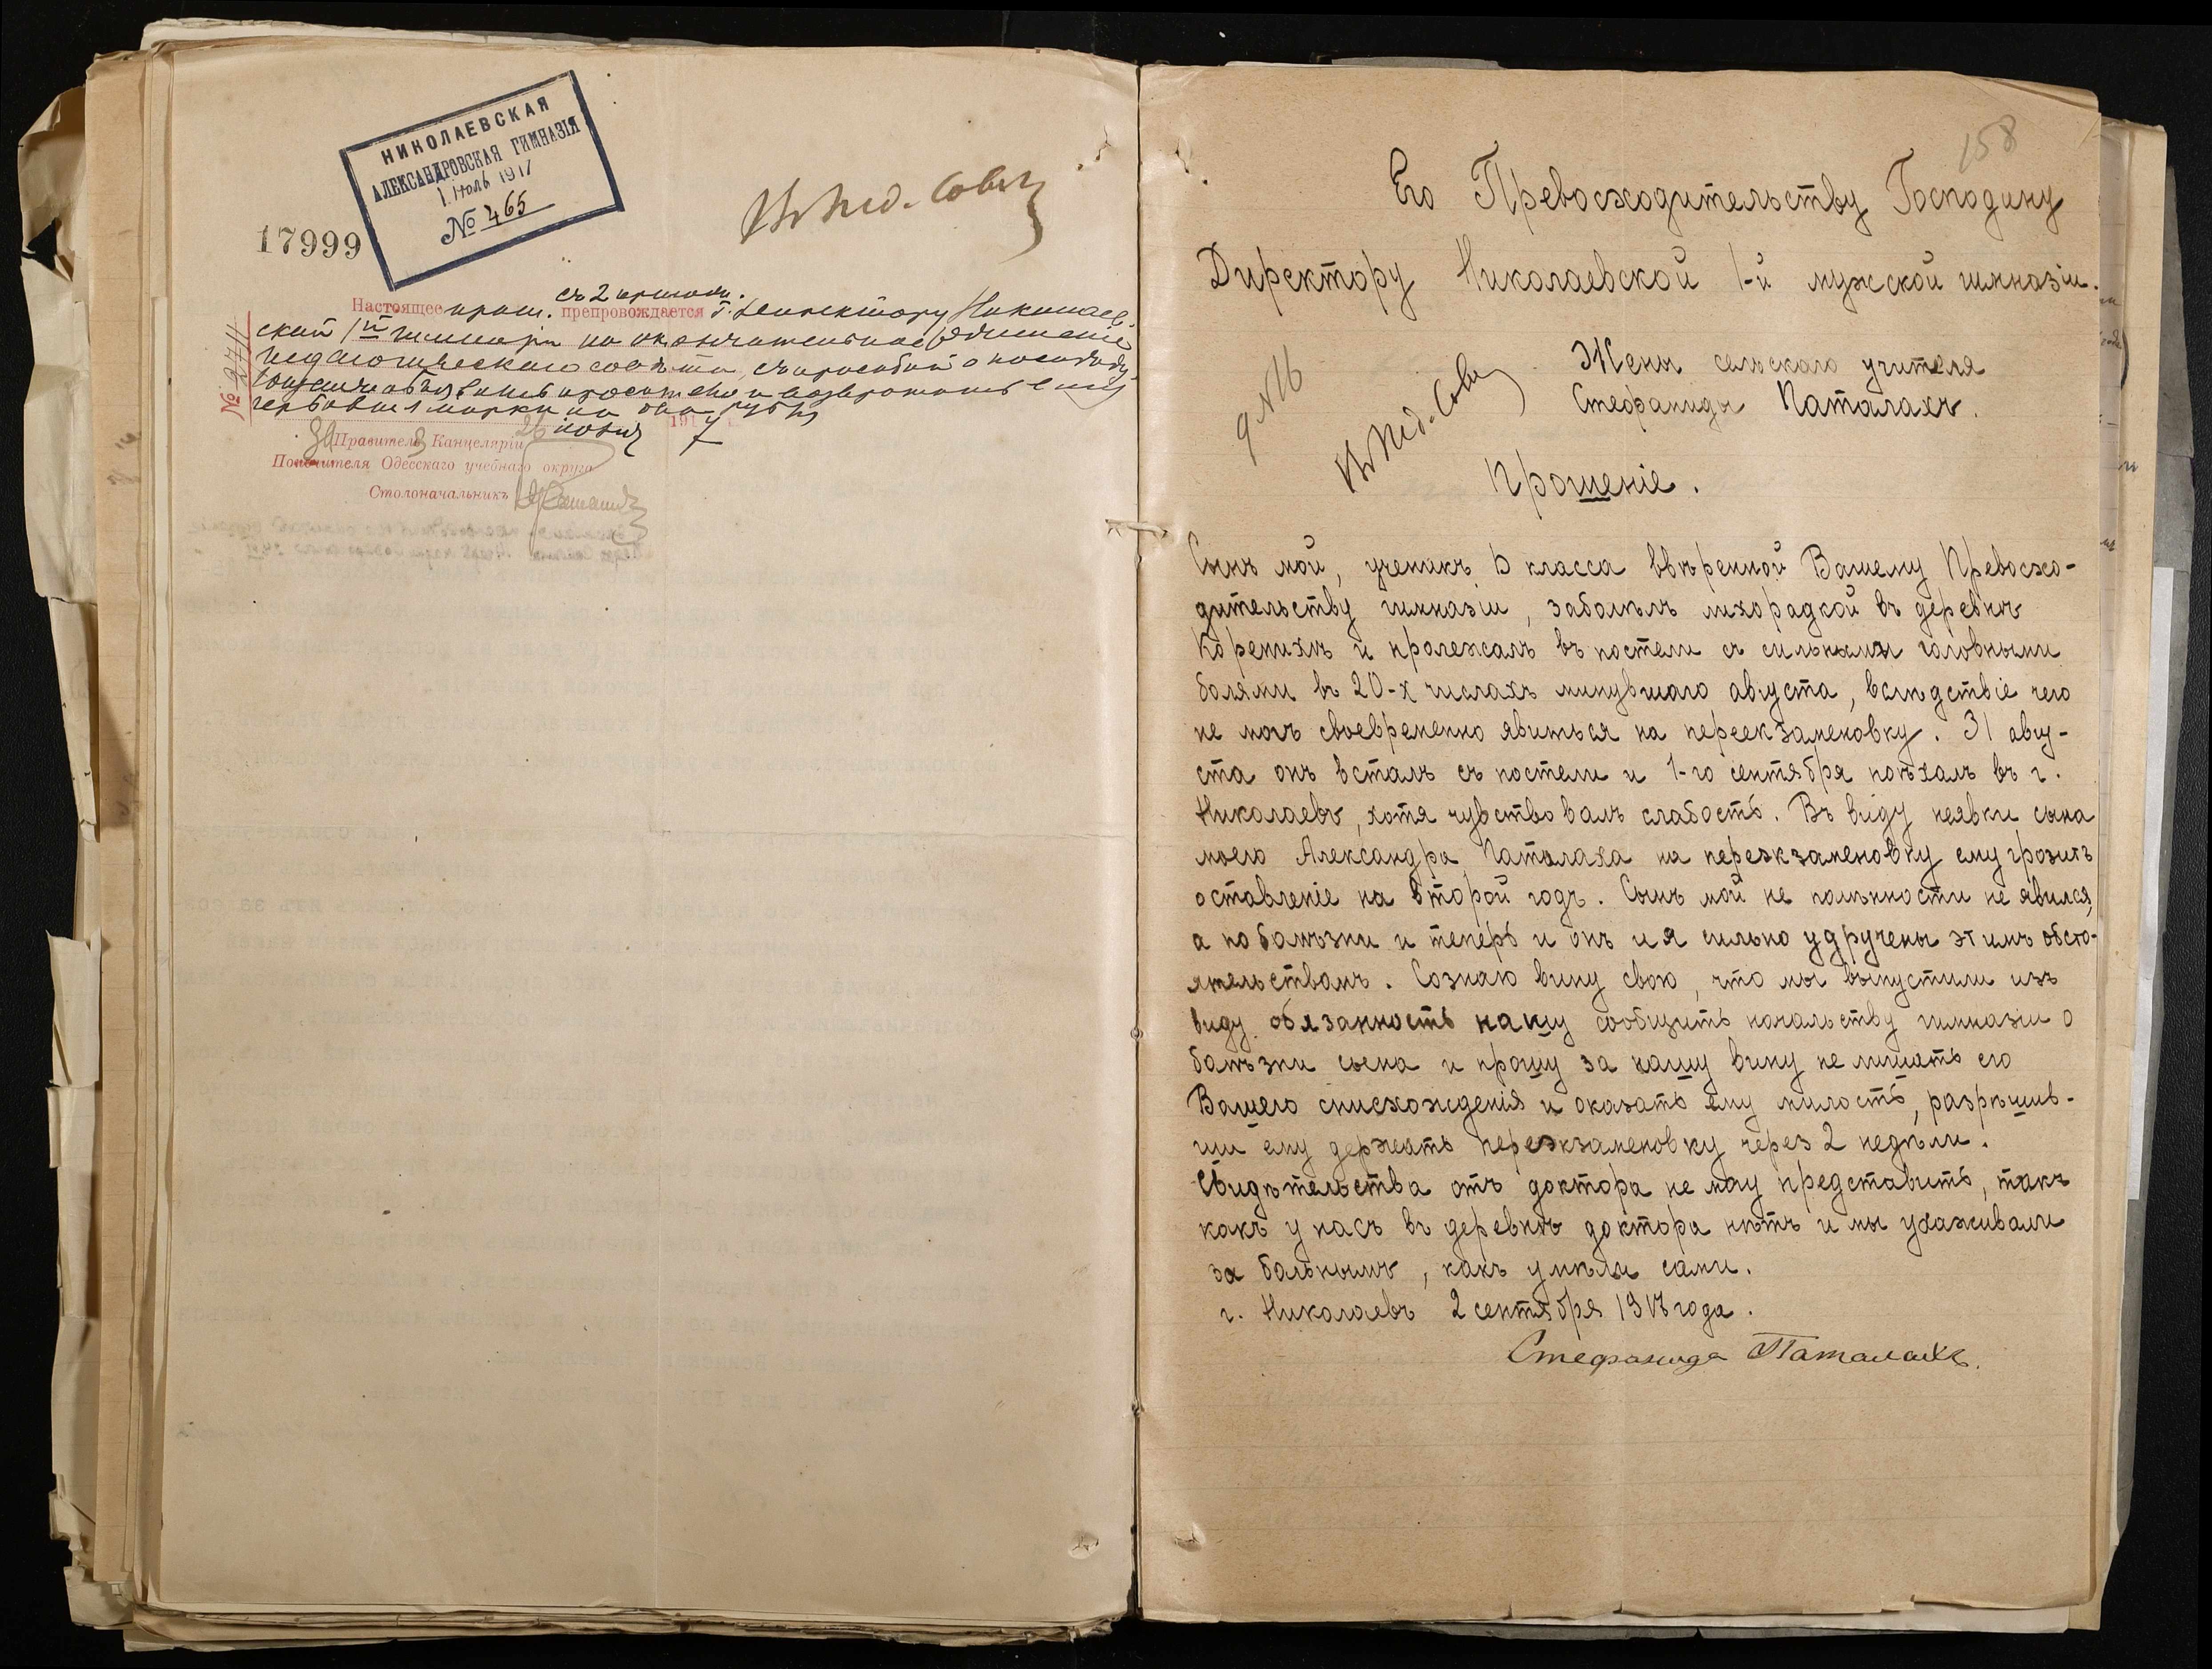 НИКОЛАЕВСКАЯ
АЛЕКСАНДРОВСКАЯ ГИМНАЗІЯ
1 Іюль 1917
№ 465
17999
Въ Пед. Совѣтъ
съ 2 прилож.
Настоящее прош. препровождается Г. Директору Николаев-
ской 1й гимназіи на окончательное рѣшеніе
педагогическаго совѣта, съ просьбой о послѣду-
гербовыя марки на два рубля
26 іюня 1917
За Правителя Канцеляріи
Попечителя Одесскаго учебнаго округа
Столоначальникъ
158
Его Превосходительству Господину
Директору Николаевской 1-й мужской гимназіи.
Въ Пед. Совѣтъ
Жены сельскаго учителя
Стефаниды Паталахъ.
Прошеніе.
Сынъ мой, ученикъ 5 класса ввѣренной Вашему Превосхо-
дительству гимназіи, заболѣлъ лихорадкой въ деревнѣ
Коренихѣ и пролежалъ въ постели съ сильными головными
болями въ 20-х числахъ минувшаго августа, вслѣдствіе чего
не могъ своевременно явиться на переекзаменовку. 31 авгу-
ста онъ всталъ съ постели и 1-го сентября поѣхалъ въ г.
Николаевъ, хотя чувствовалъ слабость. Въ виду неявки сына
моего Александра Паталаха на переэкзаменовку ему грозитъ
оставленіе на второй годъ. Сынъ мой не по лѣности не явился,
а по болѣзни и теперь и онъ и я сильно удручены этимъ обсто-
ятельствомъ. Сознаю вину свою, что мы выпустили изъ
виду обязанность нашу сообщить начальству гимназіи о
болѣзни сына и прошу за нашу вину не лишать его
Вашего снисхожденія и оказать ему милость, разрѣшив-
ши ему держать переэкзаменовку через 2 недѣли.
Свидѣтельства отъ доктора не могу представить, такъ
какъ у насъ въ деревнѣ доктора нѣтъ и мы ухаживали
за больнымъ, какъ умѣли сами.
г. Николаевъ 2 сентября 1917 года.
Стефанида Паталахъ.